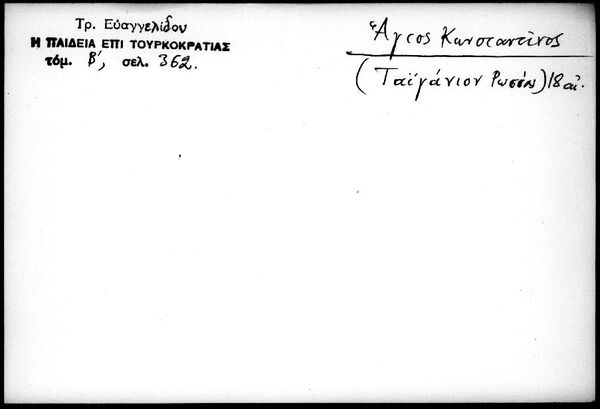 Τρ. Εὐαγγελίδου
Η ΠΑΙΔΕΙΑ ΕΠΙ ΤΟΥΡΚΟΚΡΑΤΙΑΣ
τόμ. Β', σελ. 362.
Ἄγιος Κωνσταντῖνος
(Ταϊγάνιον Ρωσίας) 18 αἰ.